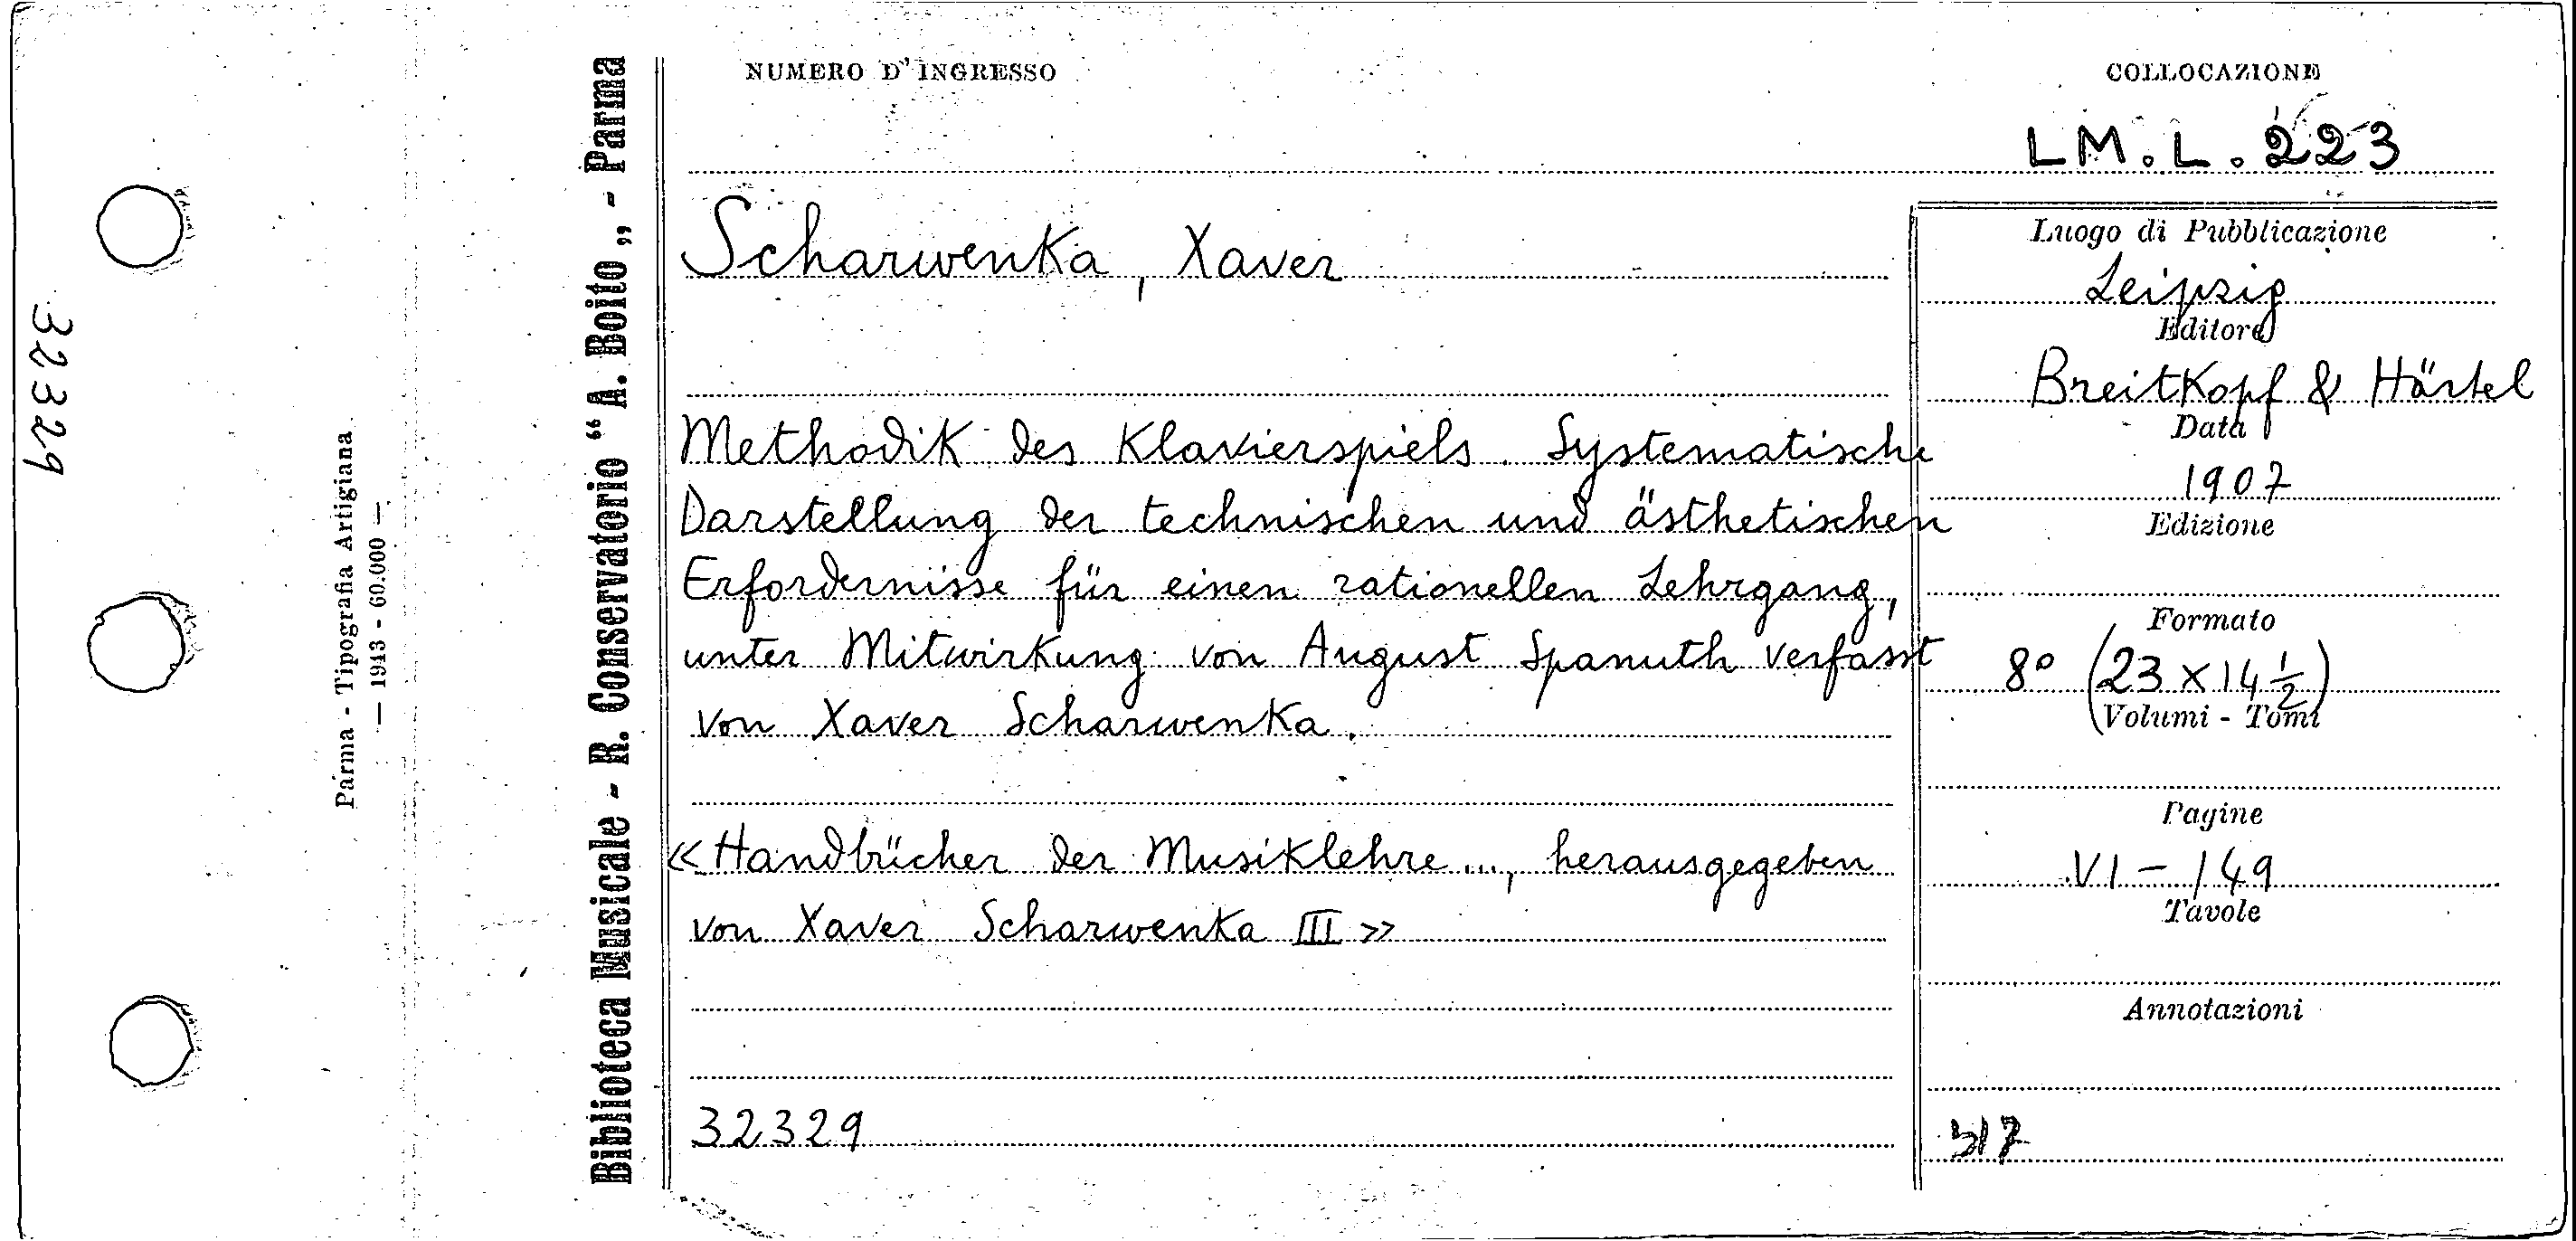 32329
Parma - Tipografia Artigiana
— 1943 - 60.000 —
Biblioteca Musicale - R. Conservatorio “A. Boito„ - Parma
NUMERO D'INGRESSO
COLLOCAZIONE
LM.L.223
Scharwenka, Xaver
Methodik des Klavierspiels. Systematische
Darstellung der technischen und ästhetischen
Erfordernisse für einen rationellen Lehrgang,
unter Mitwirkung von August Spanuth verfasst
von Xaver Scharwenka.
«Handbücher der Musiklehre..., herausgegeben
von Xaver Scharwenka III»
32329
Luogo di Pubblicazione
Leipzig
Editore
Breitkopf & Härtel
Data
1907
Edizione
Formato
8° (23 x 14 1/2)
Volumi - Tomi
Pagine
VI - 149
Tavole
Annotazioni
317